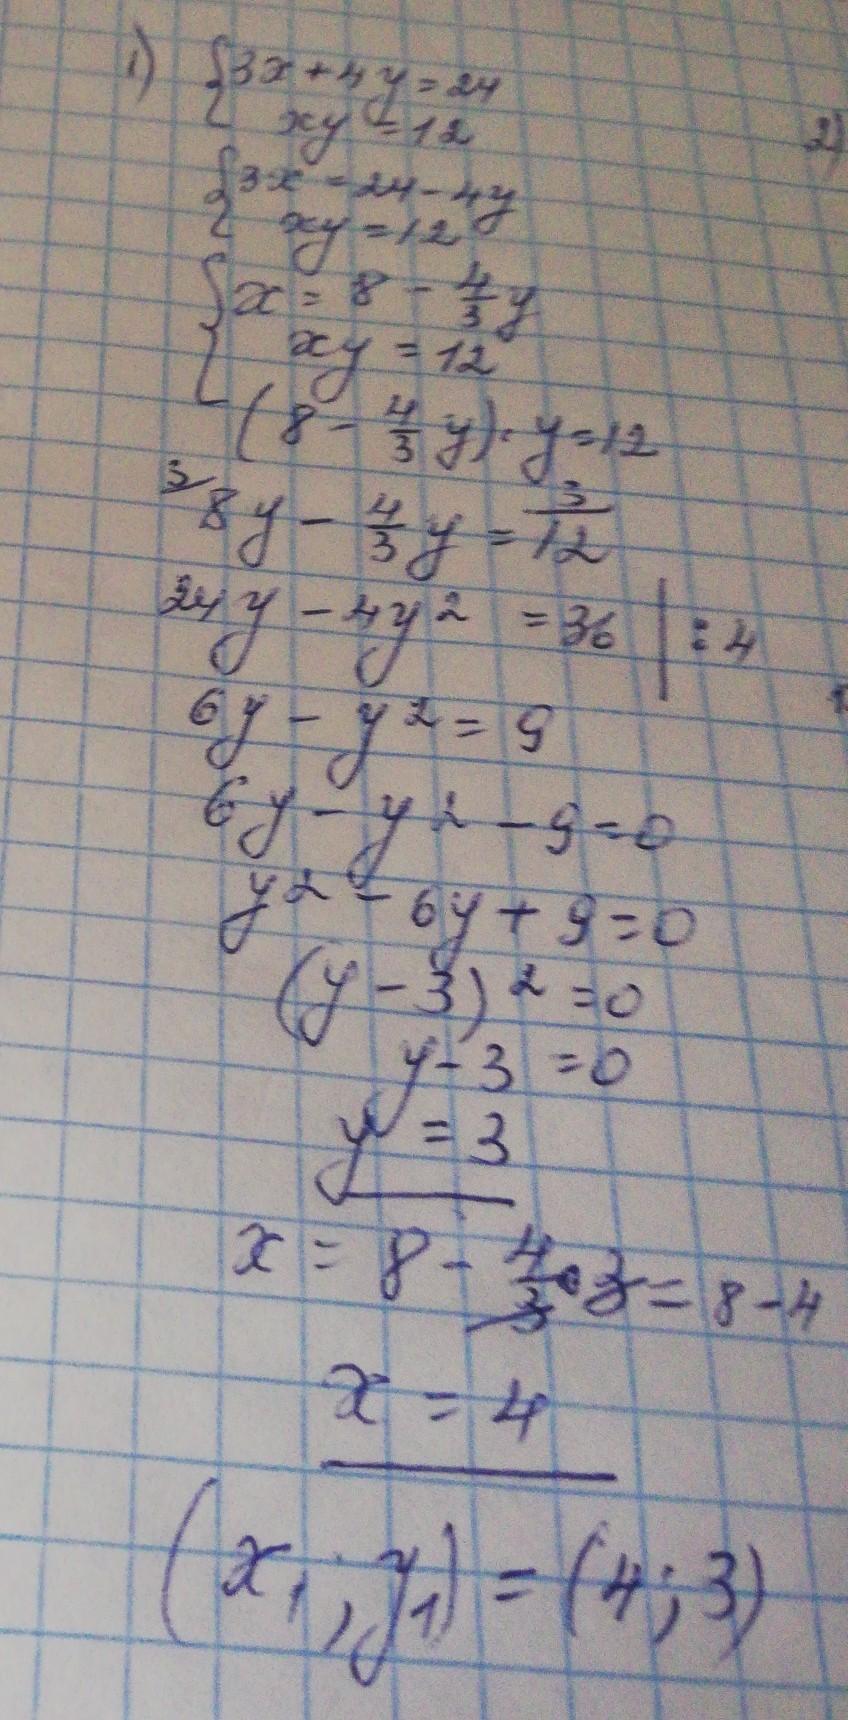 1) {3x + 4y = 24
xy = 12
2)
{3x = 24 - 4y
xy = 12
{x = 8 - 4/3 y
xy = 12
(8 - 4/3 y) · y = 12
3/ 8y - 4/3 y = 3/ 12
24y - 4y² = 36 | : 4
6y - y² = 9
6y - y² - 9 = 0
y² - 6y + 9 = 0
(y - 3)² = 0
y - 3 = 0
y = 3
x = 8 - 4/3 · 3 = 8 - 4
x = 4
(x₁ ; y₁) = (4 ; 3)